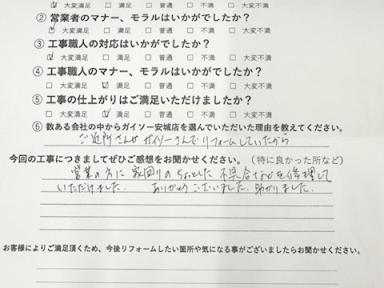 □ 大変満足 □ 満足 □ 普通 □ 不満 □ 大変不満
② 営業者のマナー、モラルはいかがでしたか？
□ 大変満足 □ 満足 □ 普通 □ 不満 □ 大変不満
③ 工事職人の対応はいかがでしたか？
□ 大変満足 □ 満足 □ 普通 □ 不満 □ 大変不満
④ 工事職人のマナー、モラルはいかがでしたか？
□ 大変満足 □ 満足 □ 普通 □ 不満 □ 大変不満
⑤ 工事の仕上がりはご満足いただけましたか？
□ 大変満足 □ 満足 □ 普通 □ 不満 □ 大変不満
⑥ 数ある会社の中からガイソー安城店を選んでいただいた理由を教えてください。
ご近所さんがガイソーさんでリフォームしていたから
今回の工事につきましてぜひご感想をお聞かせください。（特に良かった所など）
営業の方に家回りのちょっとした不具合などを修理して
いただけました。 ありがとうございました。助かりました。
お客様によりご満足頂くため、今後リフォームしたい箇所や気になる事がございましたらお聞かせください。